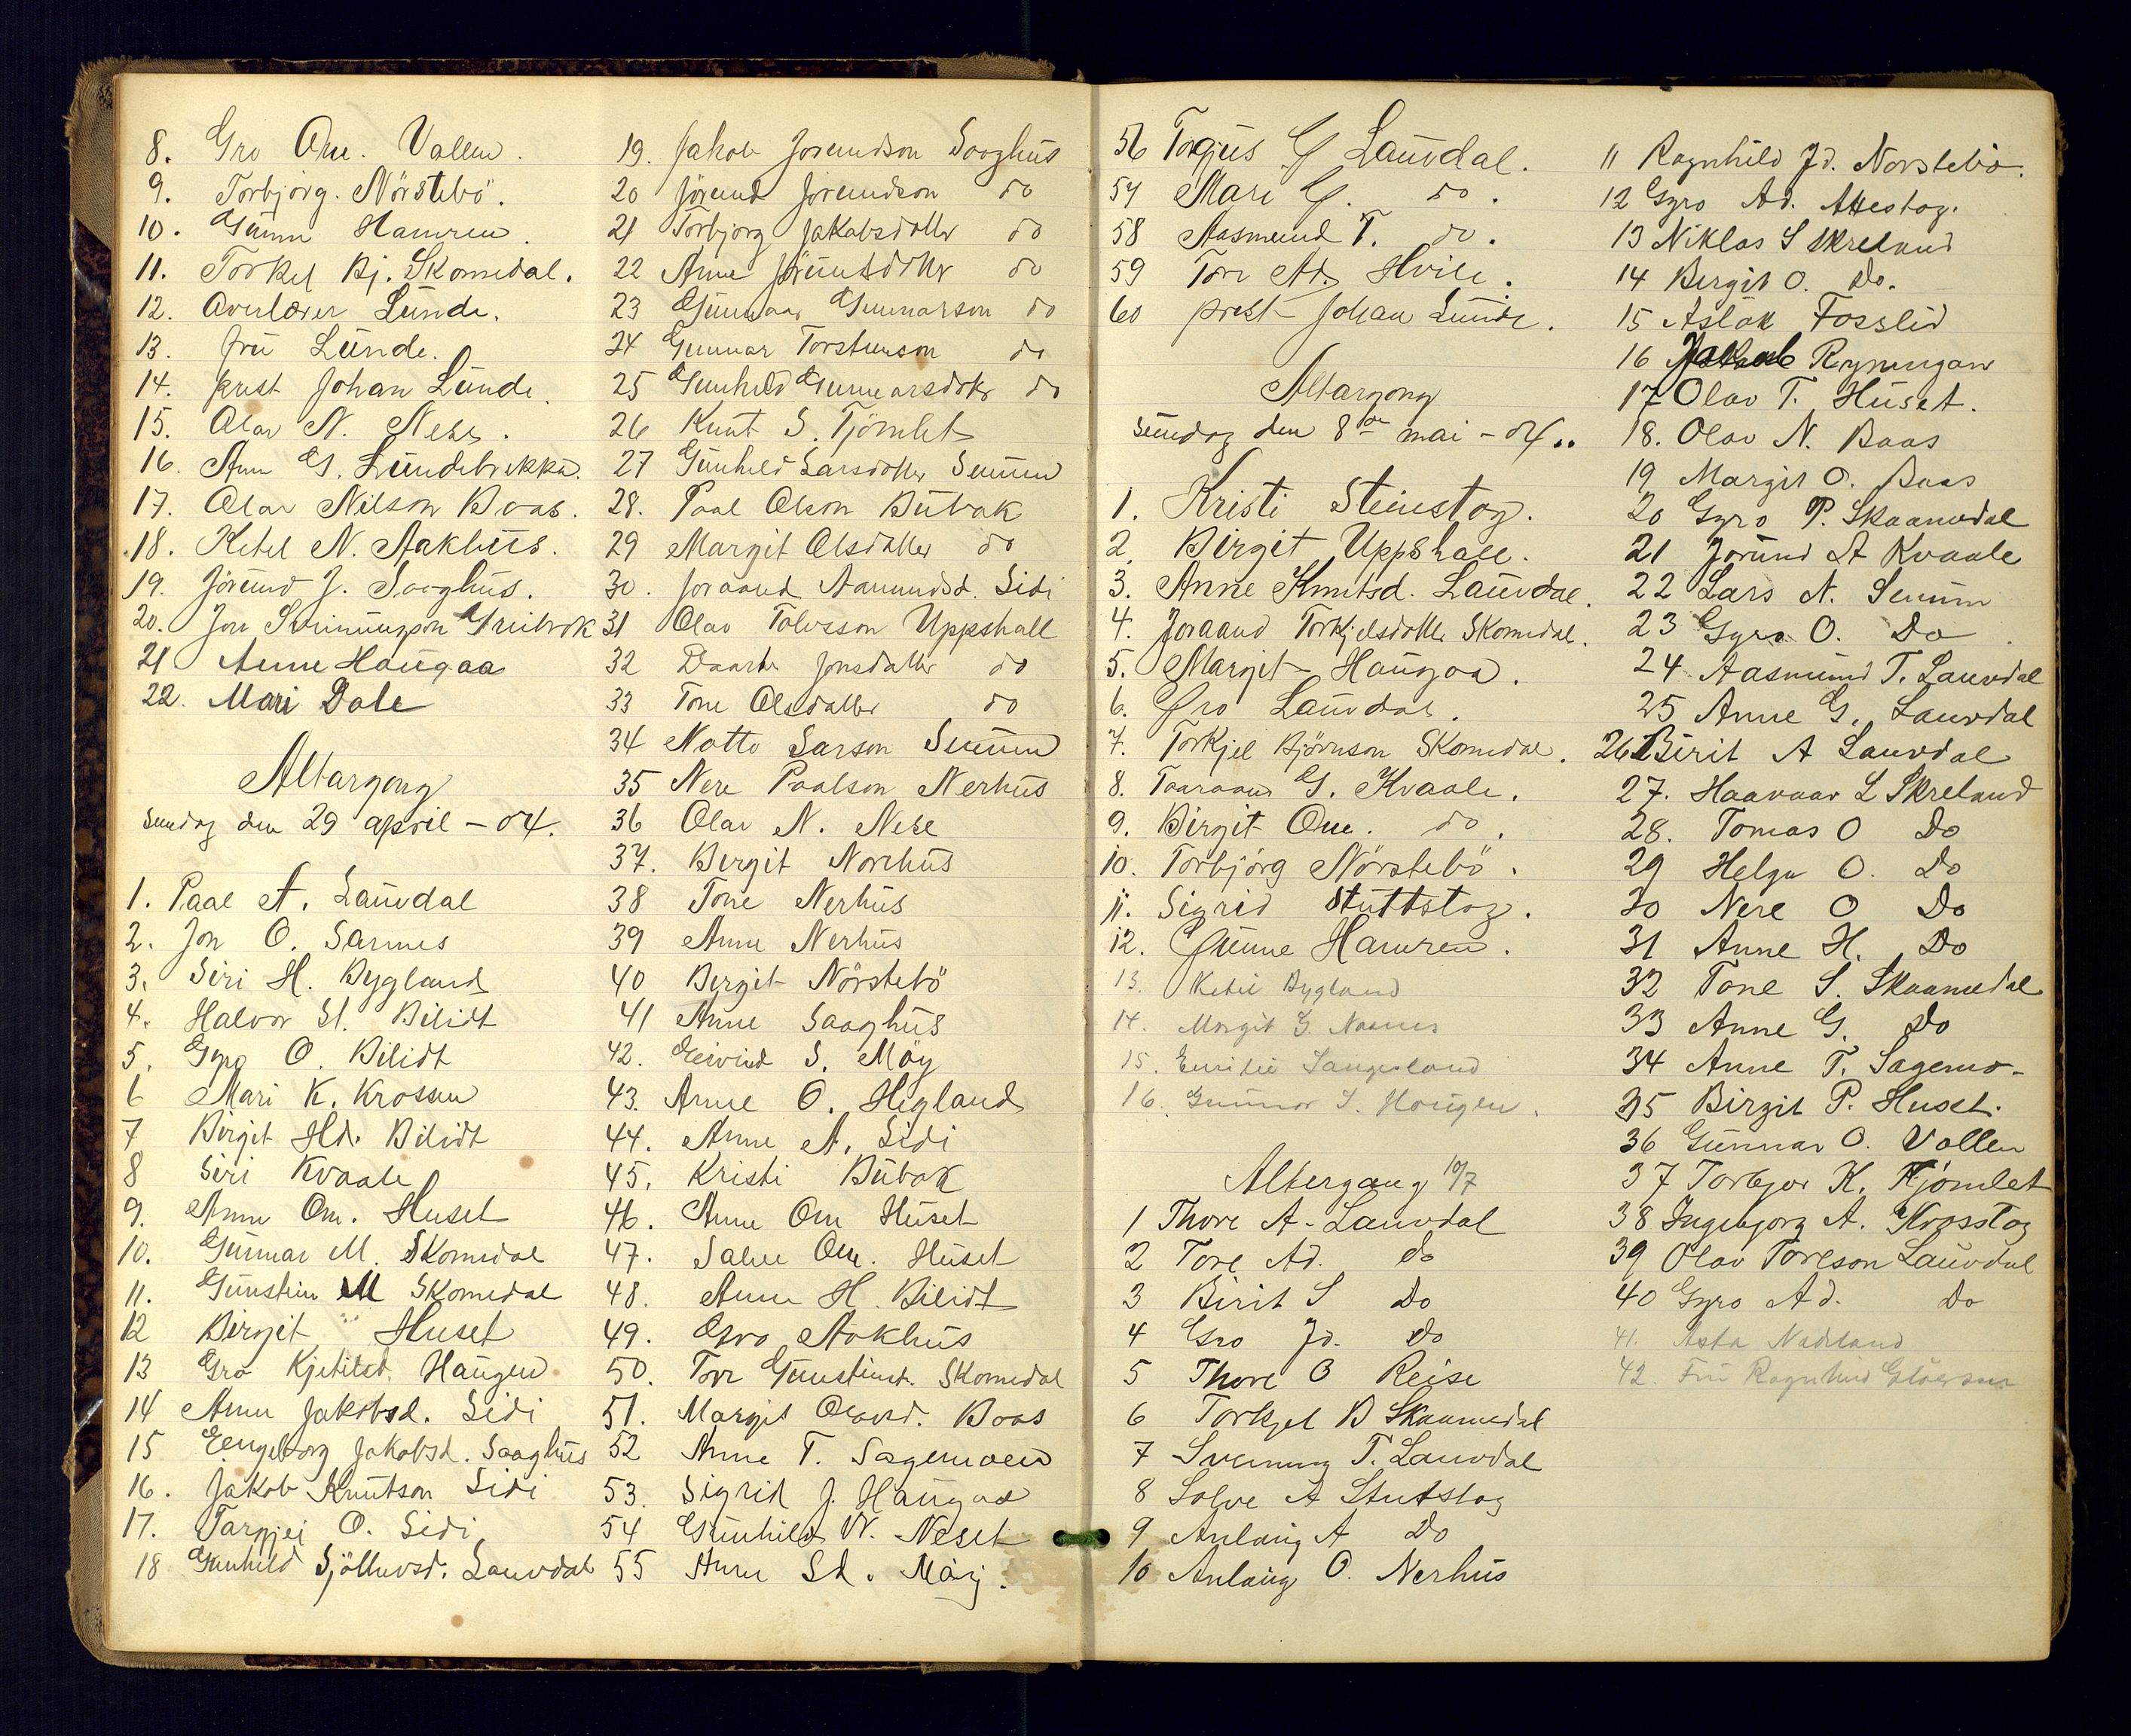 8. Gro Om. Vallen.
9. Torbjörg. Nörstebö.
10. Gunne Hamren.
11. Torkel Bj. Skomedal.
12. Overlærer Lunde.
13. fru Lunde.
14. prest Johan Lunde.
15. Olav N. Nese.
16. Anne G. Lundebrekka.
17. Olav Nilson Baas.
18. Ketel N. Aakhus.
19. Jörund J. Sooghus.
20. Jon
21 Anne Haugaa
22. Mari Dale
Altargong
sundag den 29 april - 04.
1. Paal A. Lauvdal
2. Jon O. Sarnes
3. Siri H. Bygland
4. Halvor St. Bilidt
5. Gyro O. Bilidt
6 Mari K. Krossen
7 Birgit Hd. Bilidt
8 Siri Kvaale
9. Anne Om. Huset
10. Gunnar M. Skomedal
11. Gunstein M Skomedal
12 Birgit Huset
13 Gro Kjetilsd. Haugen
14 Anne Jakobsd. Sidi
15 Engeborg Jakobsd. Saaghus
16. Jakob Knutson Sidi
17. Targjei O. Sidi
18 Gunhild Lauvdal
19. Jakob Jorundson Sooghus
20 Jörund Jörundson do
21 Torbjorg Jakobsdotter do
22 Anne Jörundsdotter do
23 Gunnar Gunnarson do
24 Gunnar Torsteinson do
25 Gunhild Gunnarsdotr do
26 Knut S. Tjömlet
27 Gunhild Larsdotter Senum
28. Paal Olson Bubak
29 Margit Olsdatter do
30. Joraand Aamundsd. Sidi
31 Olav Tolvsson Uppshall
32 Daarte Jonsdatter do
33 Tone Olsdatter do
34 Notto Larson Senum
35 Nere Paalson Nerhus
36 Olav N. Nese
37. Bergit Norhus
38 Tone Nerhus
39 Anne Nerhus
40 Bergit Nörstebö
41 Anne Saaghus
42. Eivind S. Möy
43. Anne O. Hegland
44. Anne A. Sidi
45. Kristi Bubak
46. Anne Om Huset
47. Salve Om. Huset
48. Anne H. Bilidt
49. Gro Aakhus
50. Torr Gunsteinsd. Skomedal
51. Margit Olavsd. Baas
52 Anne T. Sagemoen
53. Sigrid J. Haugaa
54 Gunhild N. Neset
55 Anne Sd. Möy.
56 Torgjus G Lauvdal.
57 Mari G. do.
58 Aasmund T. do.
59 Tore Ad. Hvile.
60 prest Johan Lunde.
Altargong
sundag den 8de mai - 04..
1. Kristi Steinstog.
2. Birgit Uppshall.
3. Anne Knutsd. Lauvdal.
4. Joraand Torkjelsdatter Skomedal.
5. Margit Haugaa.
6. Gro Lauvdal.
7. Torkjel Björnson Skomedal.
8. Taaraand G. Kvaale.
9. Birgit Om. do.
10. Torbjörg Nörstebö.
11. Sigrid Stuttstog.
12. Gunne Hamren.
13. Ketil Bygland
14. Margit G. Naenes
15. Emilie Langesland
16. Gunnar S. Haugen.
Altergang 10/7
1 Thore A. Lauvdal
2 Tore Ad. do
3 Birit S Do
4 Gro Jd. Do
5 Thore O Reise
6 Torkjel B Skaamedal
7 Svenung T. Lauvdal
8 Solve A Stutstog
9 Anlaug A Do
10 Anlaug O. Nerhus
11 Ragnhild Jd. Norstebö.
12 Gyro Ad. Attestog.
13 Niklas S Skreland
14 Bergit O. Do.
15 Aslak Fosslid
16 Jakob Rynningan
17 Olav T. Huset.
18. Olav N. Baas
19 Margit O. Baas
20 Gyro P. Skaamedal
21 Jorund A Kvaale
22 Lars N. Senum
23 Gyro O. Do
24 Aasmund T. Lauvdal
25 Anne G. Lauvdal
26 Birit A Lauvdal
27. Haavaar L Skreland
28. Tomas O Do
29 Helga O. Do
30 Nere O Do
31 Anne H. Do
32 Tone S. Skaamedal
33 Anne G. Do
34 Anne T. Sagemo-
35 Birgit P. Huset.
36 Gunnar O. Vallen
37 Torbjor K. Kjömlet
38 Ingebjorg A. Krosstog
39 Olav Toreson Lauvdal
40 Gyro Ad. Do
41. Asta Nadeland
42. Fru Ragnhild